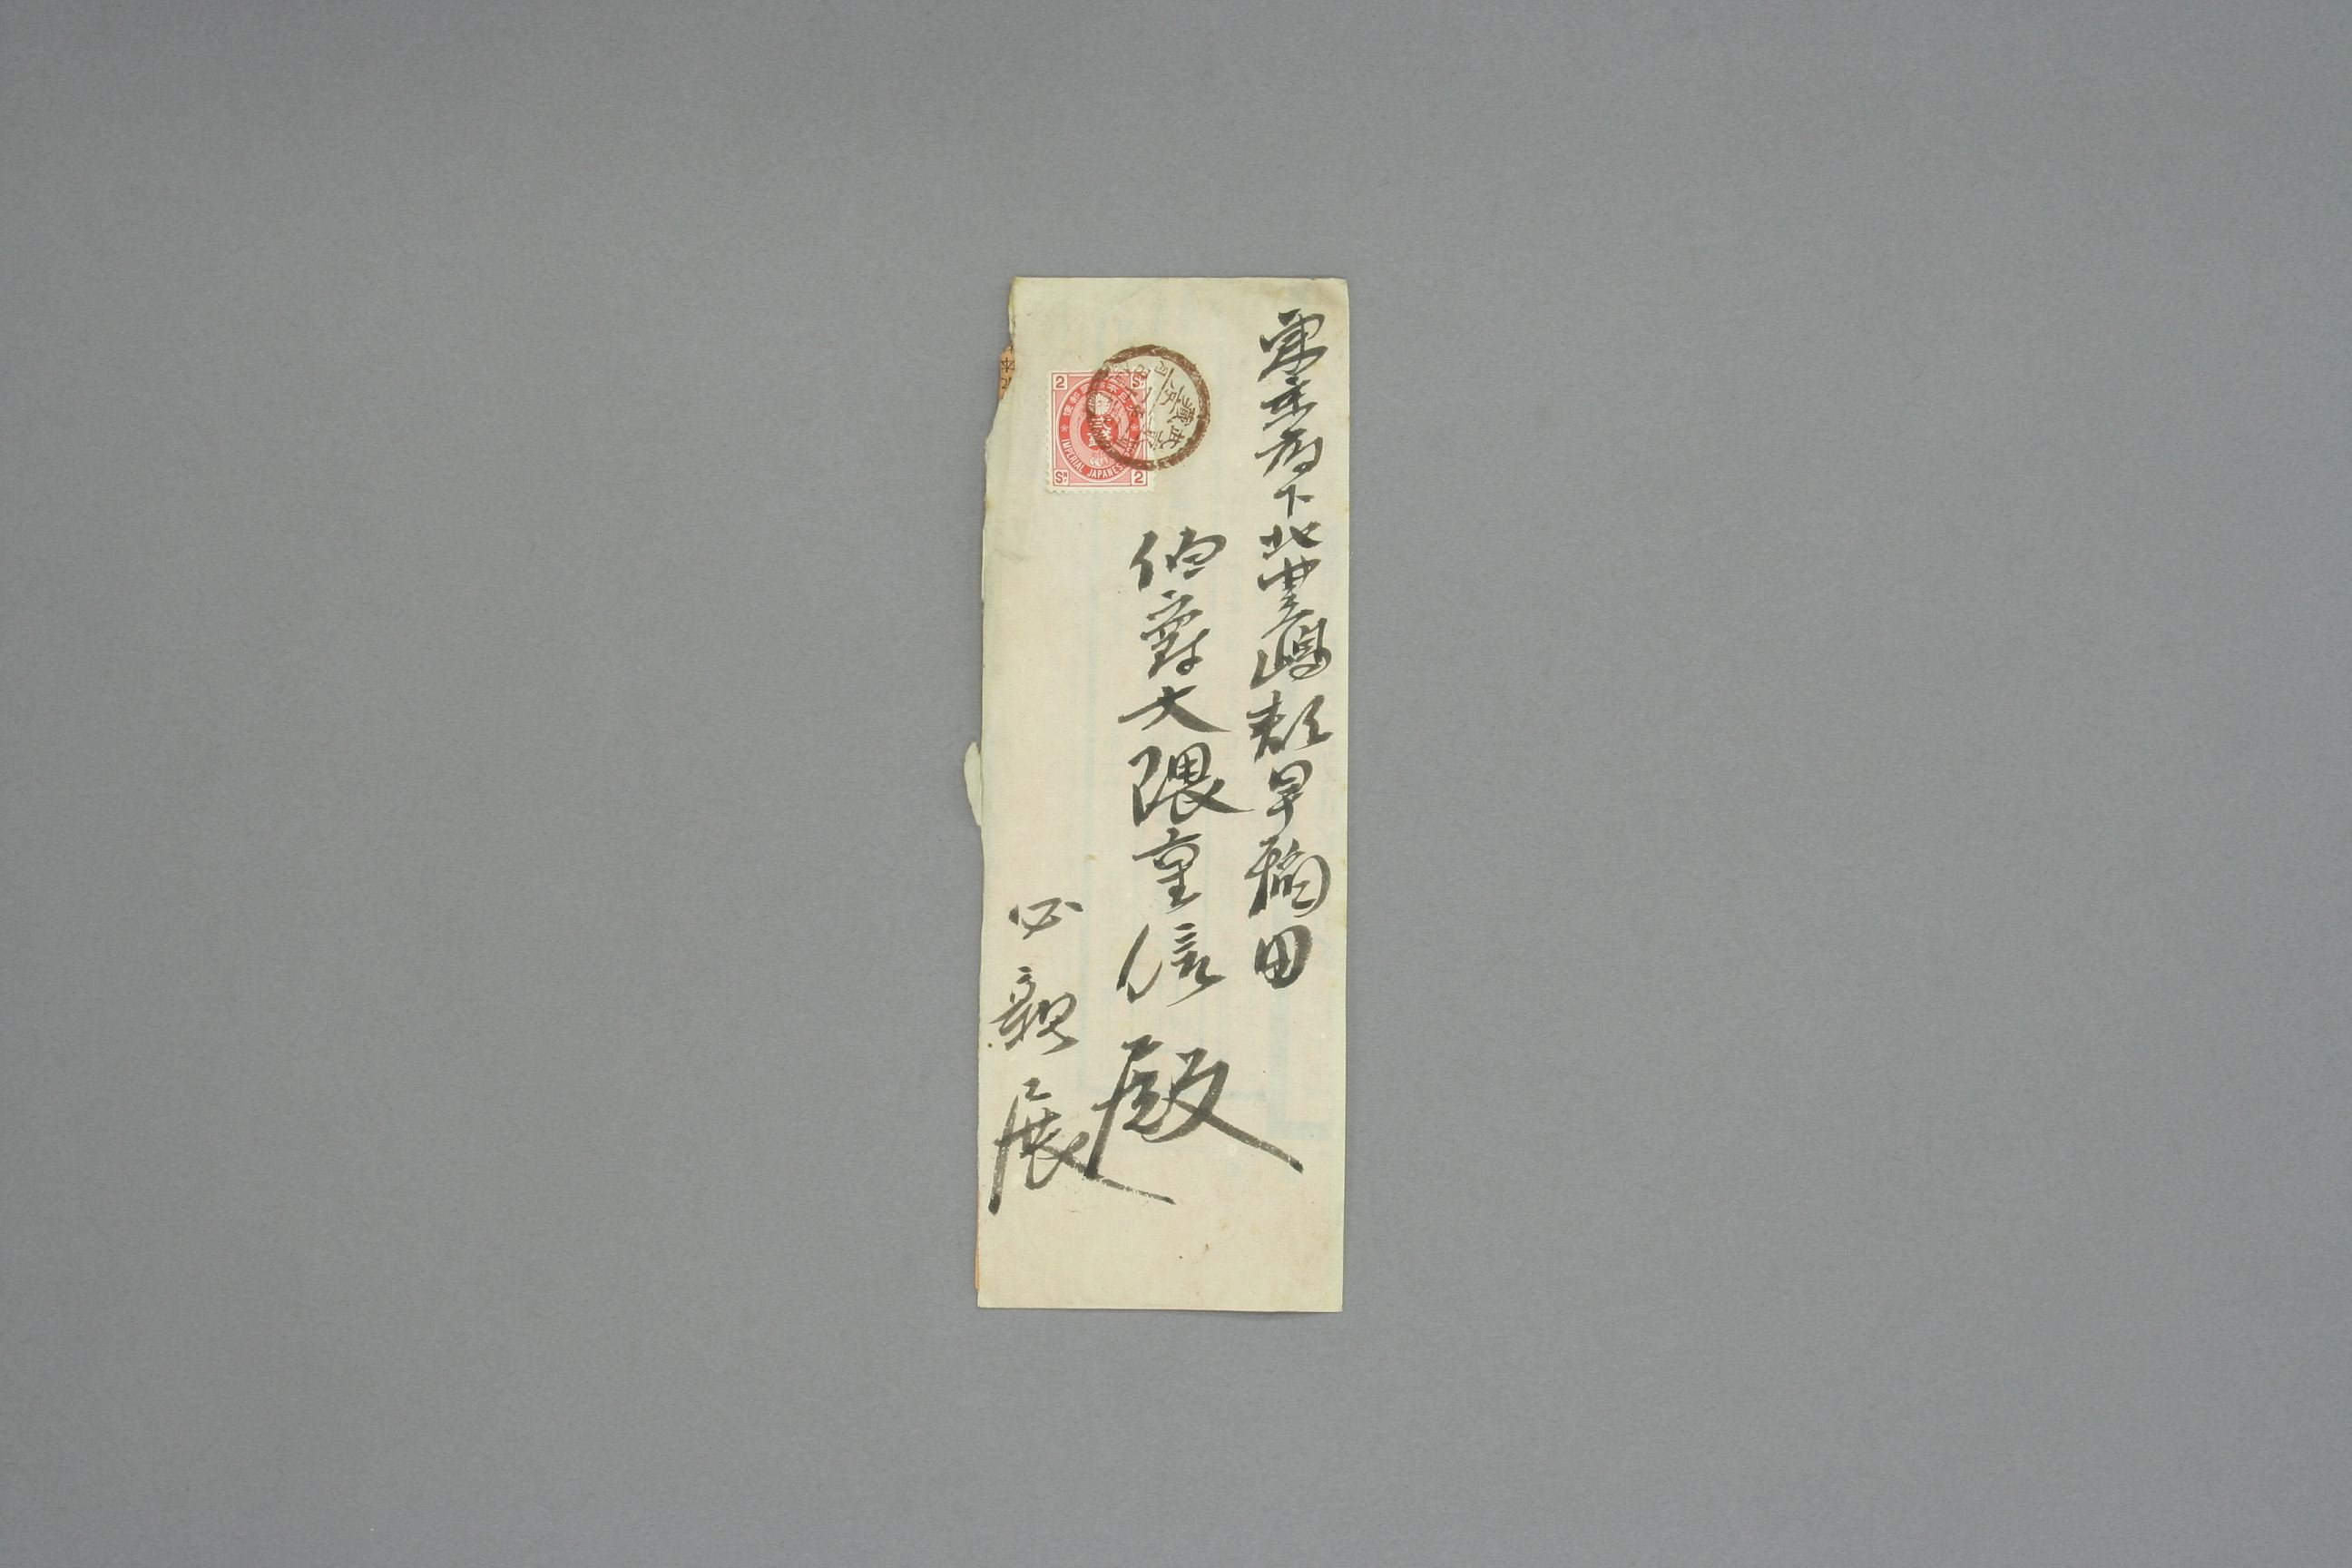 東京府下北豊嶋郡早稲田
伯爵大隈重信殿
必親展
2 SN
IMPERIAL JAPANES
SN 2